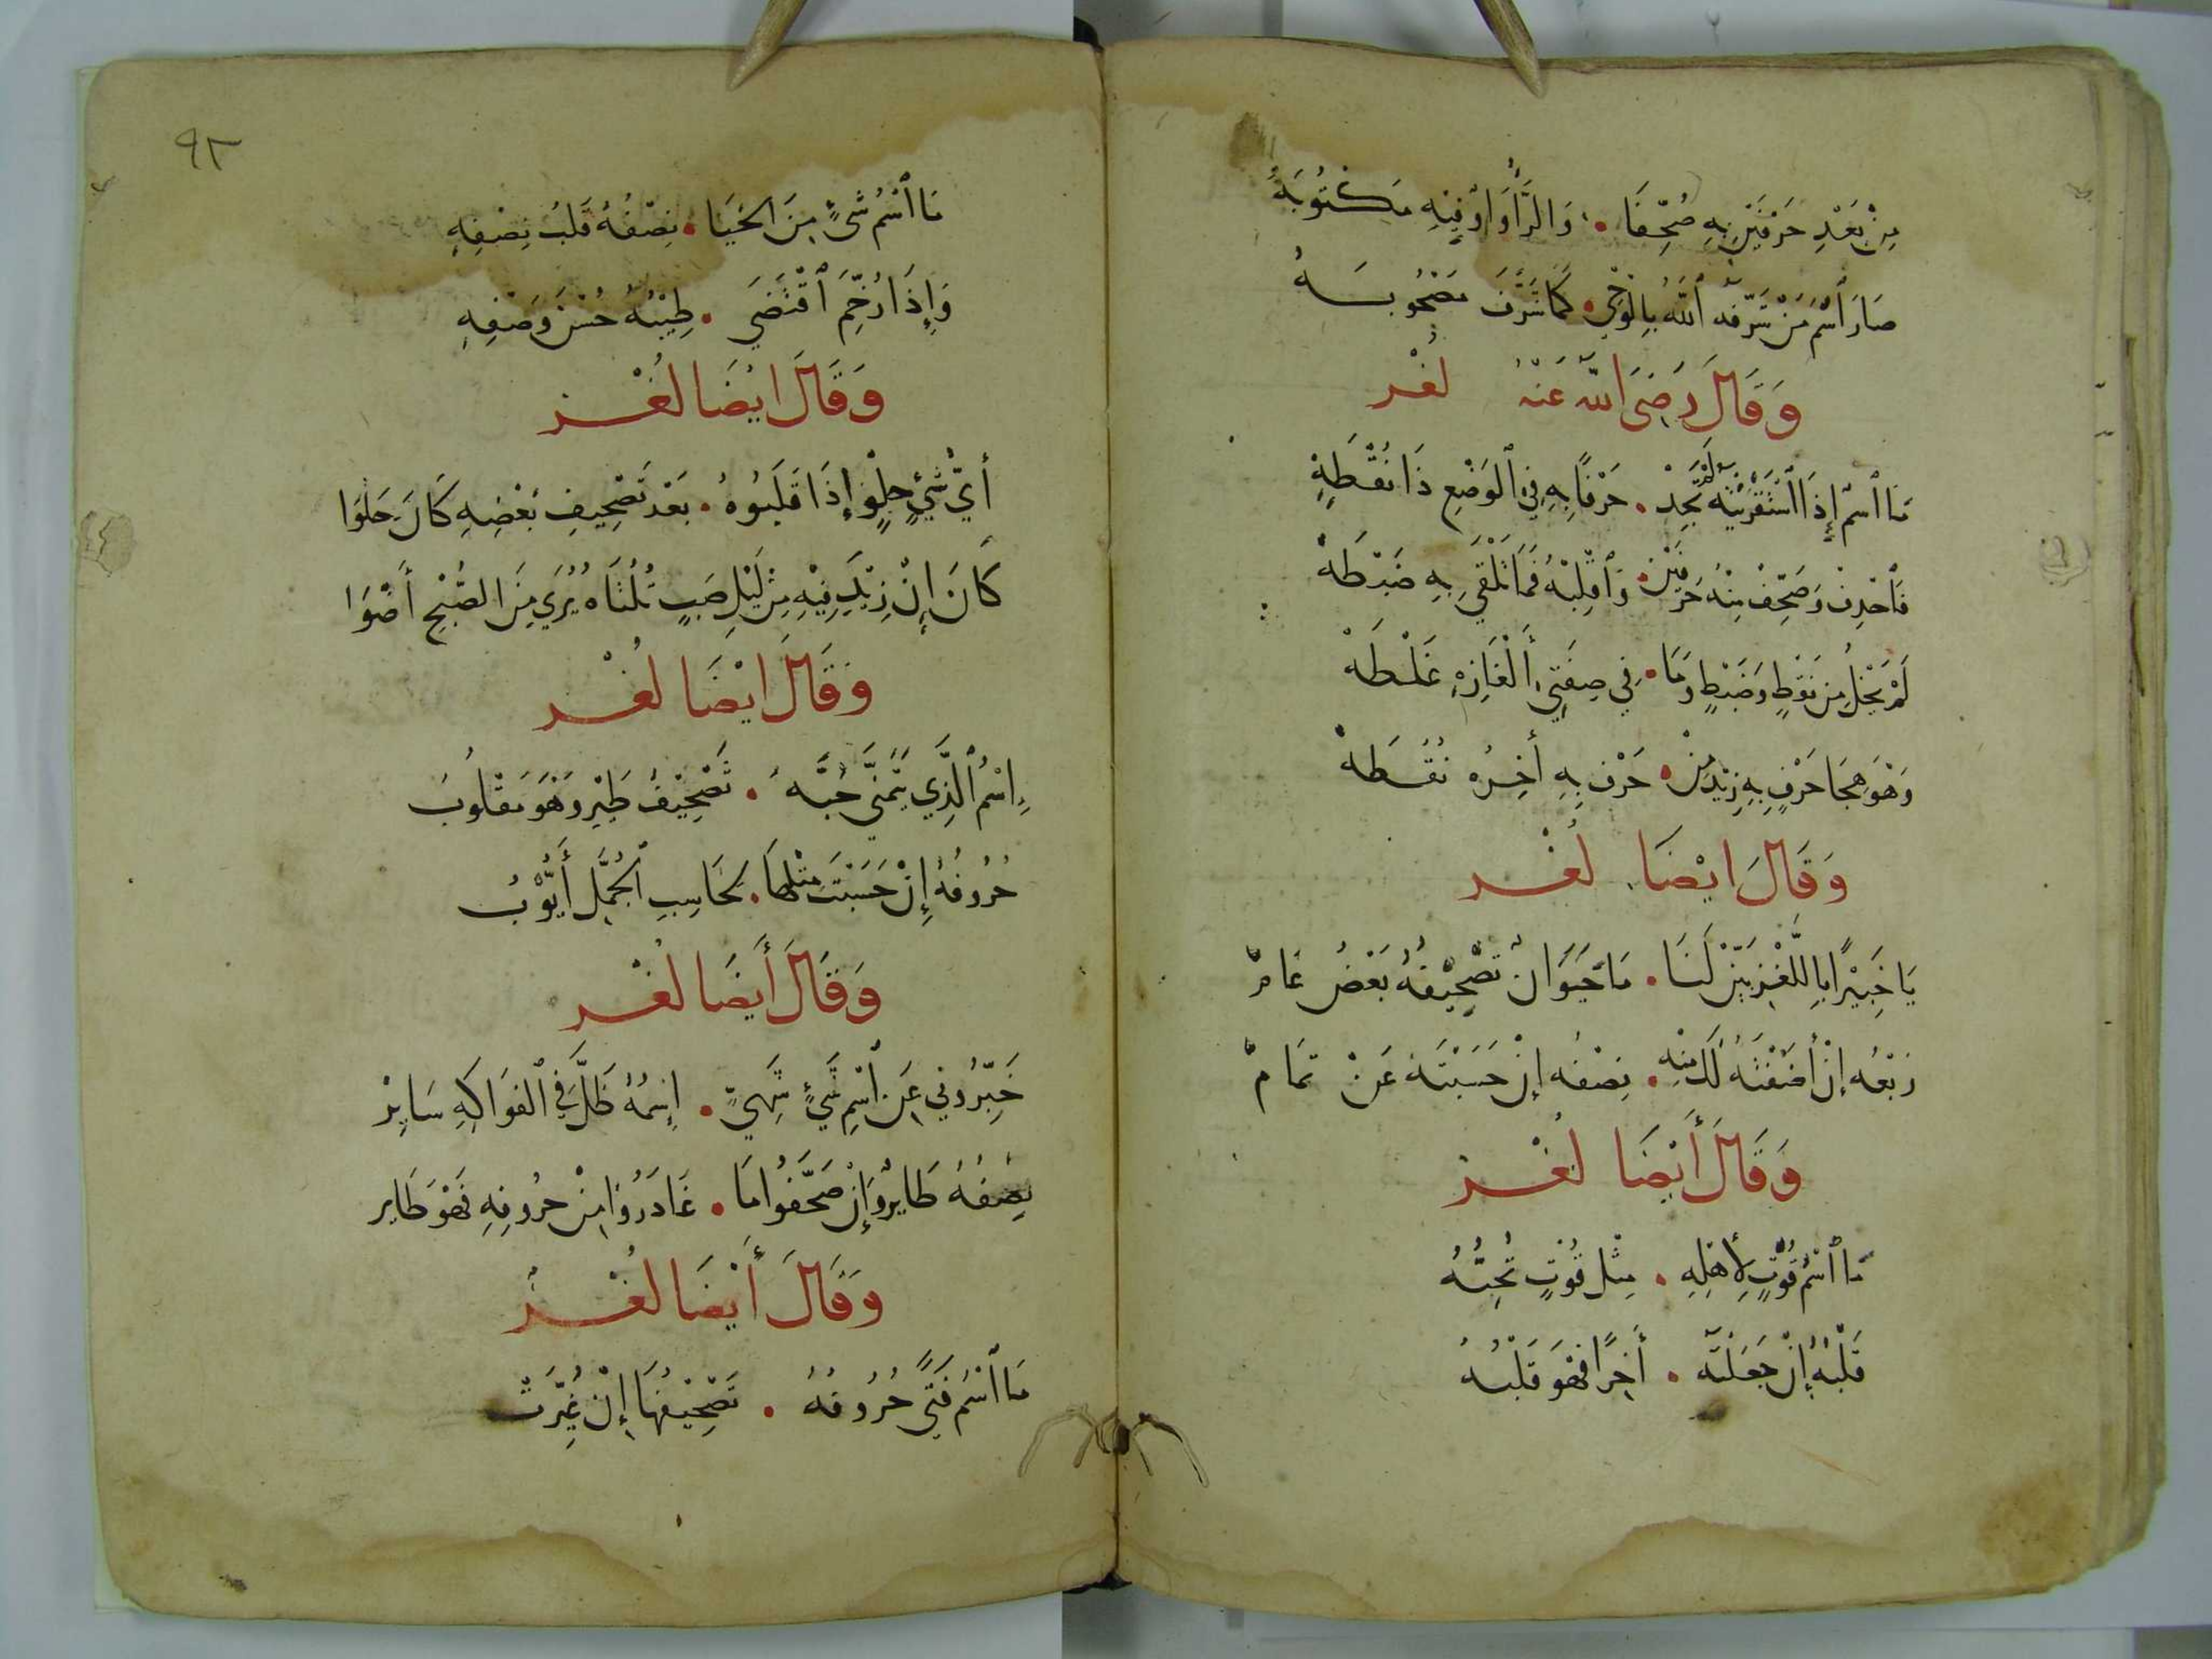 مِنْ بَعْدِ حَرْفَيْنِ بِهِ صُحِّفَا . وَالزَّاءُ وَاوٌ فِيْهِ مَكْتُوْبَهْ
صَارَ ٱسْمُ مَنْ شَرَّفَهُ ٱللَّهُ بِالْوَحْيِ . كَمَا شَرَّفَ مَصْحُوبَهُ
وَقَالَ رَضِيَ اللّٰه عَنْهُ لُغْز
مَا ٱسْمٌ إِذَا ٱسْتَقْرَيْتَهُ لَمْ تَجِدْ . حَرْفًا بِهِ فِي ٱلْوَضْعِ ذَا نُقْطَةٍ
فَٱحْذِفْ وَصَحِّفْ مِنْهُ حَرْفَيْنِ . وَٱقْلِبْهُ فَمَا تَلْقَى بِهِ ضَبْطَهْ
لَمْ يَخْلُ مِنْ نَقْطٍ وَضَبْطٍ وَمَا . فِي صِفَتِي أَلْغَازِهِ غَلْطَهْ
وَهْوَ هِجَا حَرْفٍ بِهِ زِيْدَ مِنْ . حَرْفٍ بِهِ أَخِرُه نُقْطَهْ
وَقَالَ ايْضَا لُغْز
يَا خَبِيْرًا بِاللُّغْزِ بَيِّنْ لَنَا . مَا حَيَوَانٌ تَصْحِيْفُهُ بَعْضُ عَامْ
رُبْعُه إِنْ أَضَفْتَهُ لَكَ مِنْهِ . نِصْفُه إِنْ حَسَبْتَهُ عَنْ تَمَامْ
وَقَالَ أَيْضَا لُغْز
مَا ٱسْمُ قُوْتٍ لِأَهْلِهِ . مِثْل قُوْتٍ تُحِبُّهُ
قَلْبُهُ إِنْ جَعَلْتَهُ . أَخِرًا فَهْوَ قَلْبُهُ
٩٣
مَا ٱسْمُ شَىْءٍ مِنَ الْحَيَا . نِصْفُهُ قَلْبُ نِصْفِهِ
وَإِذَا رُخِّمَ ٱقْتَضَى . طِيْبُهُ حُسْنَ وَصْفِهِ
وَقَالَ ايْضَا لُغْز
أَيُّ شَيْءٍ حلْوٍ إِذَا قَلَبُوهُ . بَعْد تَصْحِيفِ بَعْضِهِ كَانَ خِلْوَا
كَانَ إِنْ زِيْدَ فِيْهِ مِنْ لَيْلِ صَبٍّ ثُلُثَاه يُرَى مِنَ الصُّبْحِ أَضْوَا
وَقَالَ ايْضَا لُغْز
إِسْمُ ٱلَّذِي يَتَمَنَّى حُبَّهُ . تَصْحِيْفُ طَيْرٍ وَهْوَ مَقْلُوبُ
حُرُوفُهُ إِنْ حَسَبْتَ مِثْلُهَا . لِحَاسِبِ الْجُمَّلِ أَيُّوْبُ
وَقَالَ أَيضَا لُغْز
خَبِّرُونِي عَنِ ٱسْمِ شَيْءٍ شَهِيٍّ . إِسْمُهُ ظَلَّ فِي ٱلفَوَاكِهِ سَايِرْ
نِصْفُهُ طَايْرٌ وَإِنْ صَحَّفُوا مَا . غَادَرُوا مِنْ حُرُوفِهِ فَهْوَ طَايِر
وَقَالَ أَيْضَا لُغْز
مَا ٱسْمُ فَتًى حُرُوفُهُ . تَصْحِيْفُهَا إِنْ غُيِّرَتْ